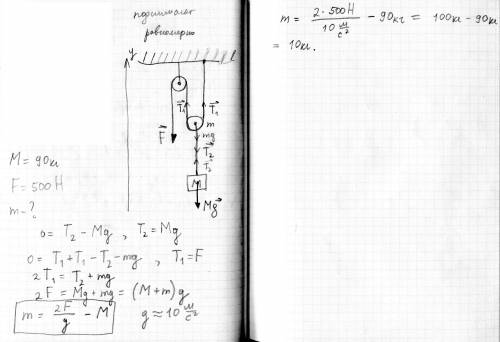 поднимают
равномерно
y
T₁ T₁
m
F mg
T₂
T₂
M
Mg
M = 90кг
F = 500Н
m - ?
0 = T₂ - Mg , T₂ = Mg
0 = T₁ + T₁ - T₂ - mg , T₁ = F
2T₁ = T₂ + mg
2F = Mg + mg = (M + m) g
m = 2F/g - M g ≈ 10 м/с²
m = 2·500Н / 10 м/с² - 90кг = 100кг - 90кг
= 10кг.